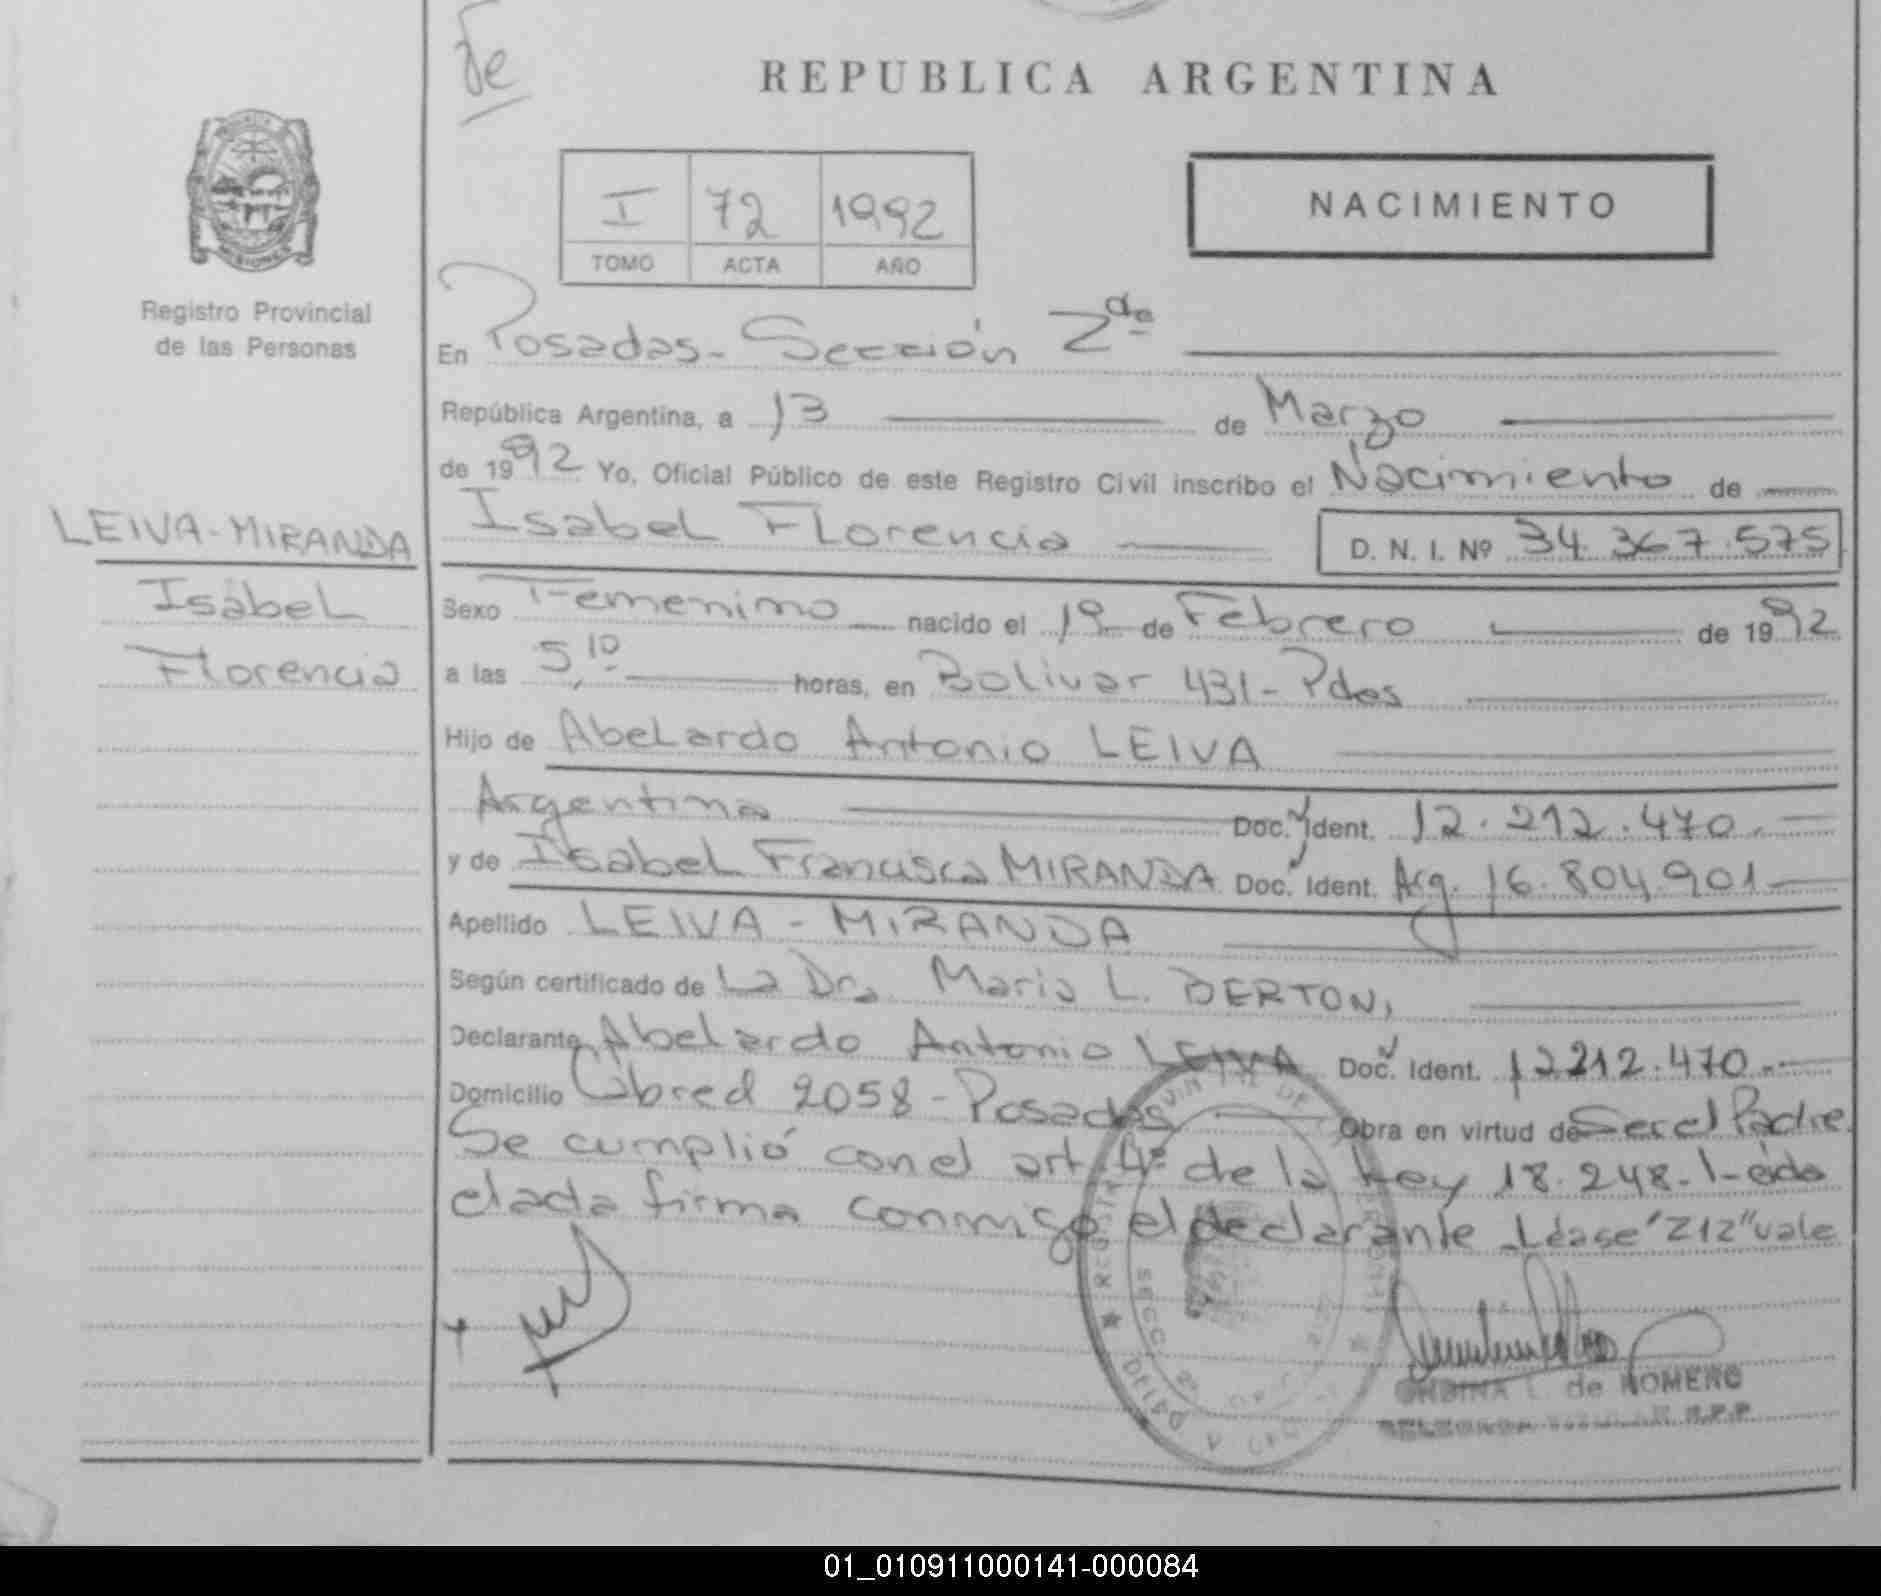 de
REPUBLICA ARGENTINA
I 72 1992
TOMO ACTA AÑO
NACIMIENTO
MISIONES
Registro Provincial
de las Personas
En Posadas - Sección 2da
República Argentina, a 13 de Marzo
de 1992 Yo, Oficial Público de este Registro Civil inscribo el Nacimiento de
Isabel Florencia D. N. I. Nº 34.367.575
LEIVA-MIRANDA
Isabel
Florencia
Sexo Femenino nacido el 19 de Febrero de 1992
a las 5,10 horas, en Bolivar 431 - Pdas
Hijo de Abelardo Antonio LEIVA
Argentina Doc. Ident. 12.212.470.
y de Isabel Francisca MIRANDA Doc. Ident. Arg. 16.804.901
Apellido LEIVA - MIRANDA
Según certificado de La Dra. Maria L. BERTON,
Declarante Abelardo Antonio LEIVA Doc. Ident. 12.212.470.
Domicilio Cabred 2058 - Posadas Obra en virtud de Ser el Padre.
Se cumplió con el art. 4º de la Ley 18.248. Leida
el acta firma conmigo el declarante. Léase "212" vale
de ROMERO
01_010911000141-000084